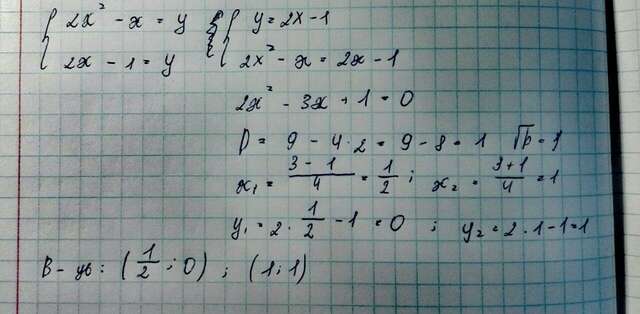 { 2x² - x = y { y = 2x - 1
{ 2x - 1 = y { 2x² - x = 2x - 1
2x² - 3x + 1 = 0
D = 9 - 4·2 = 9 - 8 = 1 √D = 1
x₁ = (3 - 1)/4 = 1/2 ; x₂ = (3+1)/4 = 1
y₁ = 2 · 1/2 - 1 = 0 ; y₂ = 2·1 - 1 = 1
В-дь: (1/2 ; 0) ; (1 ; 1)